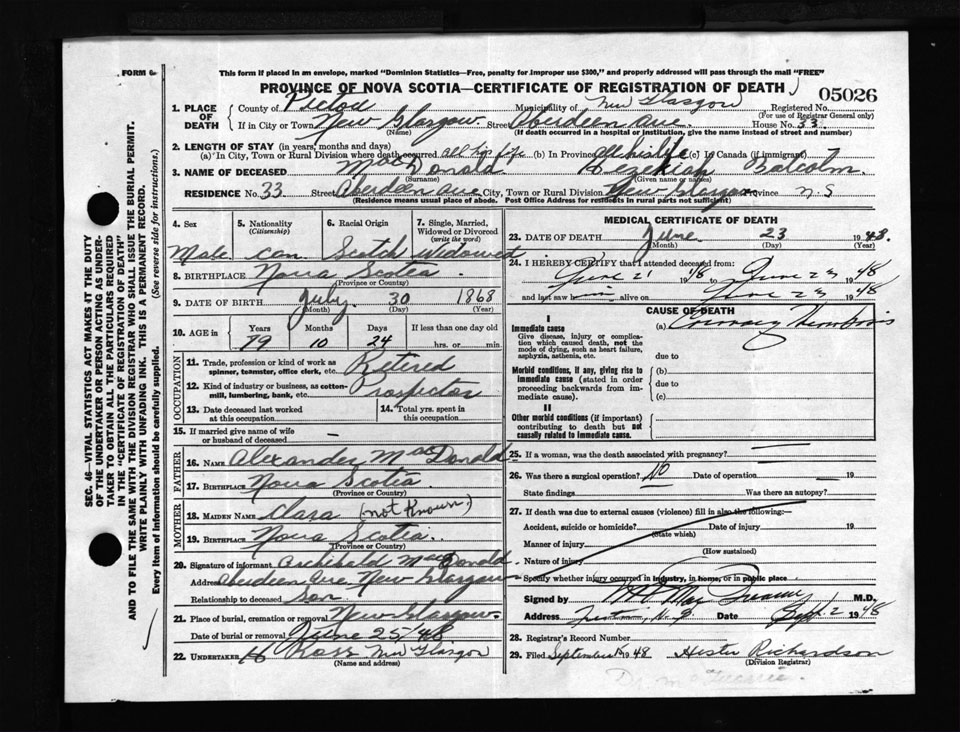 FORM 6
This form if placed in an envelope, marked "Dominion Statistics—Free, penalty for improper use $300," and properly addressed will pass through the mail "FREE"
PROVINCE OF NOVA SCOTIA—CERTIFICATE OF REGISTRATION OF DEATH
05026
1. PLACE OF DEATH
County of Pictou Municipality of New Glasgow Registered No.
(For use of Registrar General only)
If in City or Town New Glasgow Street Aberdeen Ave. House No. 33
(Name) (If death occurred in a hospital or institution, give the name instead of street and number)
2. LENGTH OF STAY (in years, months and days)
(a) In City, Town or Rural Division where death occurred all his life (b) In Province all his life (c) In Canada (if immigrant)
3. NAME OF DECEASED MacDonald Hezekiah Malcolm.
(Surname) (Given name or names)
RESIDENCE No. 33 Street Aberdeen Ave City, Town or Rural Division New Glasgow Province N.S
(Residence means usual place of abode. Post Office Address for residents in rural parts not sufficient)
SEC. 46—VITAL STATISTICS ACT MAKES IT THE DUTY
OF THE UNDERTAKER OR PERSON ACTING AS UNDER-
TAKER TO OBTAIN ALL THE PARTICULARS REQUIRED
IN THE "CERTIFICATE OF REGISTRATION OF DEATH"
AND TO FILE THE SAME WITH THE DIVISION REGISTRAR WHO SHALL ISSUE THE BURIAL PERMIT.
WRITE PLAINLY WITH UNFADING INK. THIS IS A PERMANENT RECORD.
Every item of Information should be carefully supplied. (See reverse side for instructions.)
4. Sex 5. Nationality (Citizenship) 6. Racial Origin 7. Single, Married, Widowed or Divorced (write the word)
Male Can Scotch Widowed
8. BIRTHPLACE Nova Scotia.
(Province or Country)
9. DATE OF BIRTH July 30 1868
(Month) (Day) (Year)
10. AGE in Years Months Days If less than one day old
79 10 24 hrs. or min.
OCCUPATION
11. Trade, profession or kind of work as spinner, teamster, office clerk, etc. Retired
12. Kind of industry or business, as cotton-mill, lumbering, bank, etc. Prospector
13. Date deceased last worked at this occupation
14. Total yrs. spent in this occupation
15. If married give name of wife or husband of deceased —
FATHER
16. NAME Alexander MacDonald
17. BIRTHPLACE Nova Scotia
(Province or Country)
MOTHER
18. MAIDEN NAME Clara (not known)
19. BIRTHPLACE Nova Scotia.
(Province or Country)
20. Signature of informant Archibald MacDonald.
Address Aberdeen Ave, New Glasgow
Relationship to deceased Son.
21. Place of burial, cremation or removal New Glasgow.
Date of burial or removal June 25/48
22. UNDERTAKER H Ross New Glasgow
(Name and address)
MEDICAL CERTIFICATE OF DEATH
23. DATE OF DEATH June 23 1948.
(Month) (Day) (Year)
24. I HEREBY CERTIFY that I attended deceased from:
June 21 1948 to June 23 1948
and last saw him alive on June 23 1948
CAUSE OF DEATH
I
Immediate cause
Give disease, injury or complication which caused death, not the mode of dying, such as heart failure, asphyxia, asthenia, etc.
(a) Coronary Thrombosis
due to
Morbid conditions, if any, giving rise to immediate cause (stated in order proceeding backwards from immediate cause).
(b)
due to
(c)
II
Other morbid conditions (if important) contributing to death but not causally related to immediate cause.
25. If a woman, was the death associated with pregnancy?
26. Was there a surgical operation? No Date of operation 19
State findings Was there an autopsy?
27. If death was due to external causes (violence) fill in also the following:
Accident, suicide or homicide? Date of injury 19
(State which)
Manner of injury
(How sustained)
Nature of injury
Specify whether injury occurred in industry, in home, or in public place
Signed by M.D.
Address Date Sept. 2 1948
28. Registrar's Record Number
29. Filed September 1948 Hester Richardson
(Division Registrar)